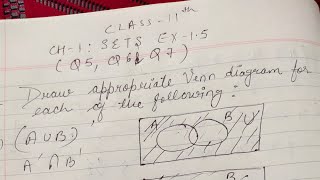 CLASS-11th
CH-1: SETS EX-1.5
(Q5, Q6 & Q7)
Draw appropriate Venn diagram for
each of the following:
(A∪B)'
A' ∩ B'
A B U